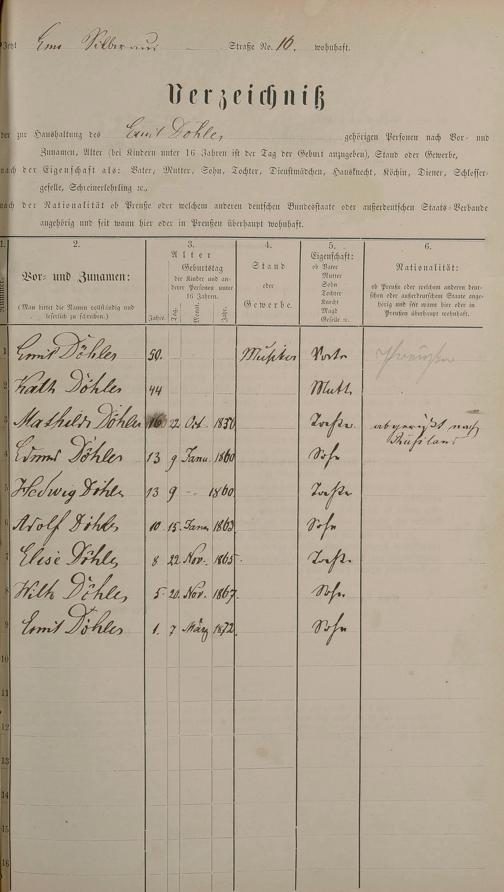 Jetzt Ems Silberau Straße No. 10. wohnhaft.
Verzeichniß
der zur Haushaltung des Emil Döhler gehörigen Personen nach Vor- und
Zunamen, Alter (bei Kindern unter 16 Jahren ist der Tag der Geburt anzugeben), Stand oder Gewerbe,
nach der Eigenschaft als: Vater, Mutter, Sohn, Tochter, Dienstmädchen, Hausknecht, Köchin, Diener, Schlosser-
geselle, Schreinerlehrling ꝛc.,
nach der Nationalität ob Preuße oder welchem anderen deutschen Bundesstaate oder außerdeutschen Staats-Verbande
angehörig und seit wann hier oder in Preußen überhaupt wohnhaft.
1. 2. 3. 4. 5. 6.
Nummer.
Vor- und Zunamen:
(Man bittet die Namen vollständig und
leserlich zu schreiben.)
Alter
Geburtstag
der Kinder und an-
derer Personen unter
16 Jahren.
Jahre. Tag. Monat. Jahr.
Stand
oder
Gewerbe.
Eigenschaft:
ob Vater
Mutter
Sohn
Tochter
Köchin
Knecht
Magd
Geselle ꝛc.
Nationalität:
ob Preuße oder welchem anderen deut-
schen oder außerdeutschen Staate ange-
hörig und seit wann hier oder in
Preußen überhaupt wohnhaft.
1 Emil Döhler 50. Musiker Vater Preußen
2 Kath Döhler 44 Mutt
3 Mathilde Döhler 16 22 Oct 1856 Tochter abgereißt nach
Rußland
4 Edmund Döhler 13 9 Janu. 1860 Sohn
5 Hedwig Döhler 13 9 -- 1860 Tochter
6 Adolf Döhler 10 15. Janu. 1863. Sohn
7 Elise Döhler 8 22 Nov. 1865. Tochter
8 Wilh Döhler 5 20. Nov. 1867. Sohn
9 Emil Döhler 1. 7 März 1872. Sohn
10
11
12
13
14
15
16